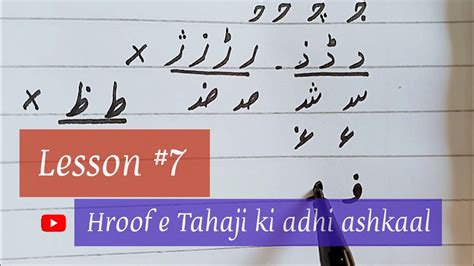 جـ چـ حـ خـ
د ڈ ذ ۔ ر ڑ ز ژ ×
سـ شـ صـ ضـ ط ظ ×
عـ غـ
فـ
Lesson #7
Hroof e Tahaji ki adhi ashkaal